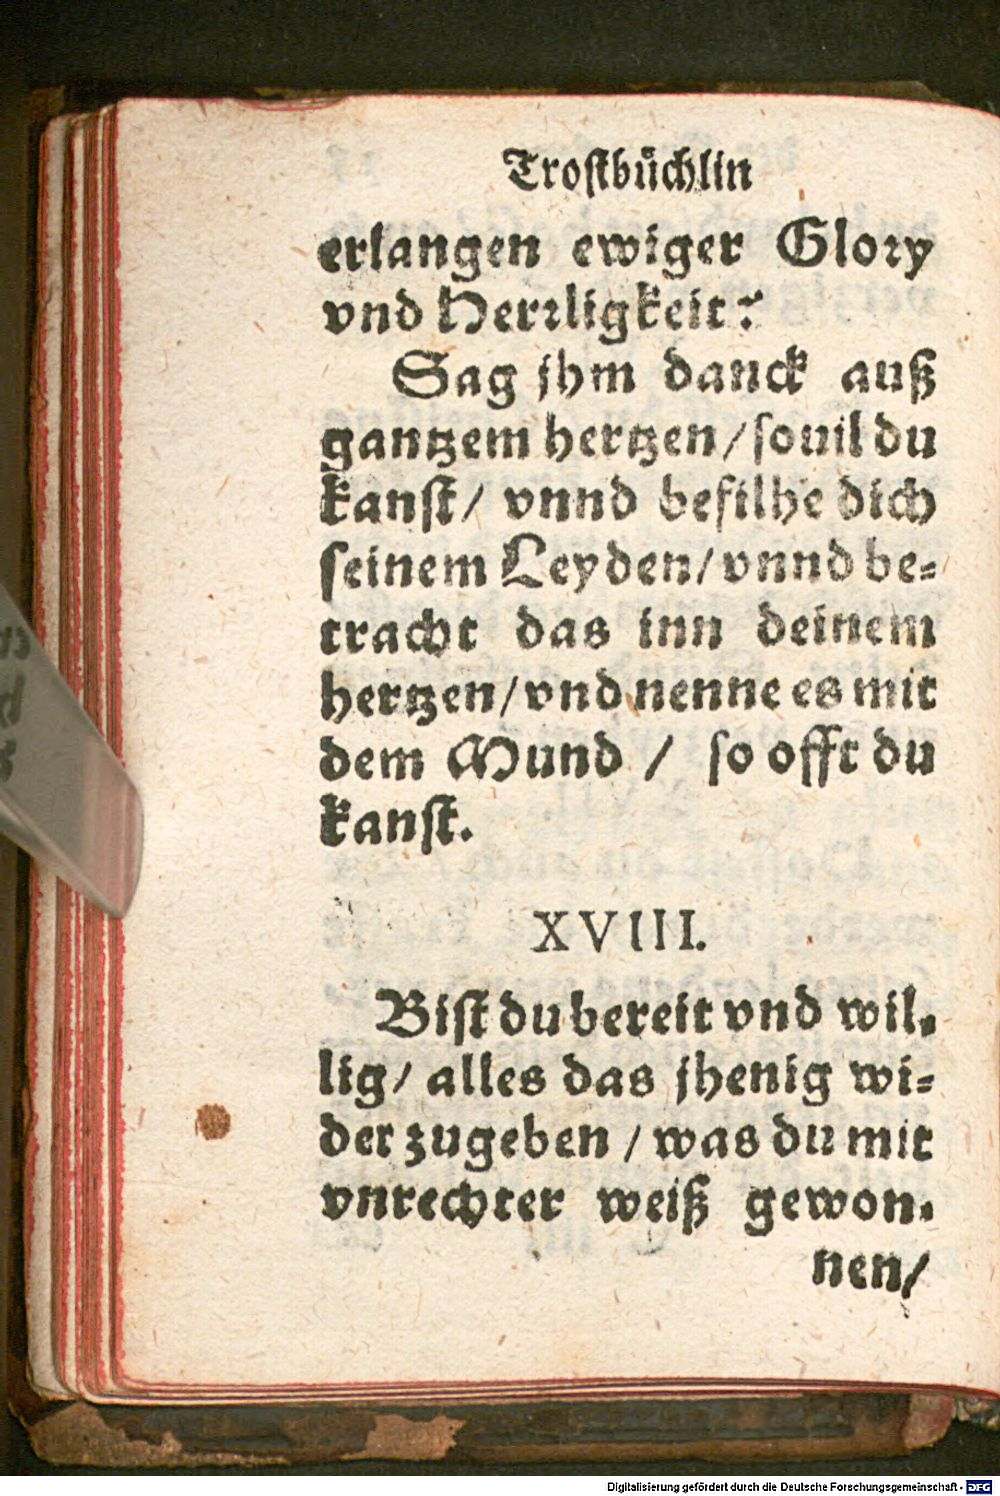 Trostbüchlin
erlangen ewiger Glory
vnd Herrligkeit?
Sag jhm danck auß
gantzem hertzen/souil du
kanst/ vnnd befilhe dich
seinem Leyden/vnnd be-
tracht das inn deinem
hertzen/vnd nenne es mit
dem Mund / so offt du
kanst.
XVIII.
Bist du bereit vnd wil-
lig/ alles das jhenig wi-
der zugeben / was du mit
vnrechter weiß gewon-
nen/
Digitalisierung gefördert durch die Deutsche Forschungsgemeinschaft - DFG